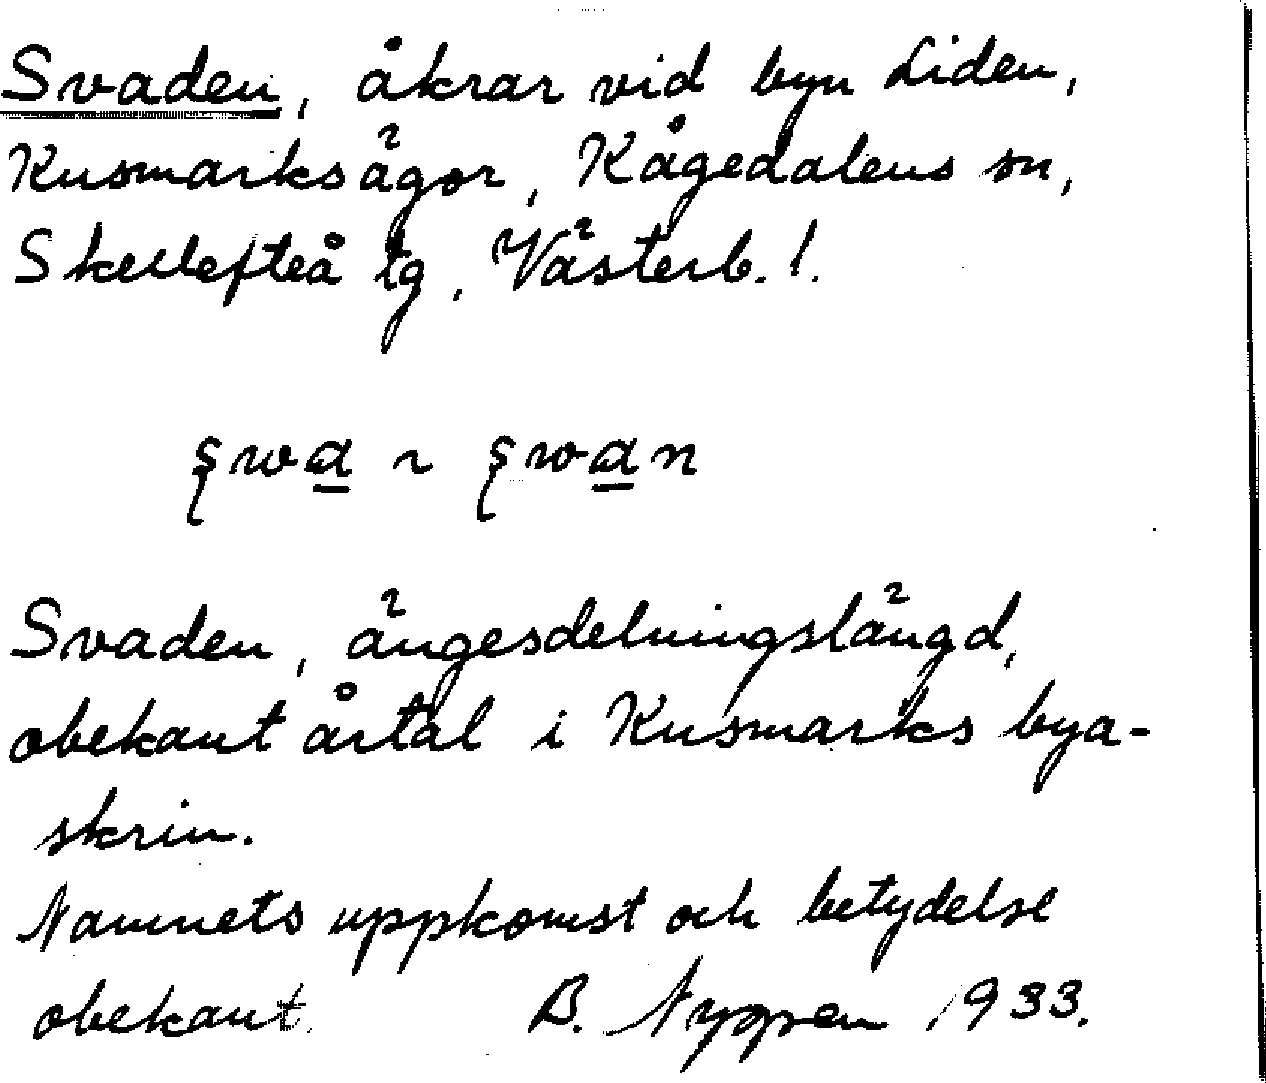 Svaden, åkrar vid byn Liden,
Kusmarksägor, Kågedalens sn,
Skellefteå tg, Västerb. l.
swa ~ swan
Svaden, ängesdelningslängd,
obekant årtal i Kusmarks bya-
skrin.
Namnets uppkomst och betydelse
obekant. B. Nygren 1933.